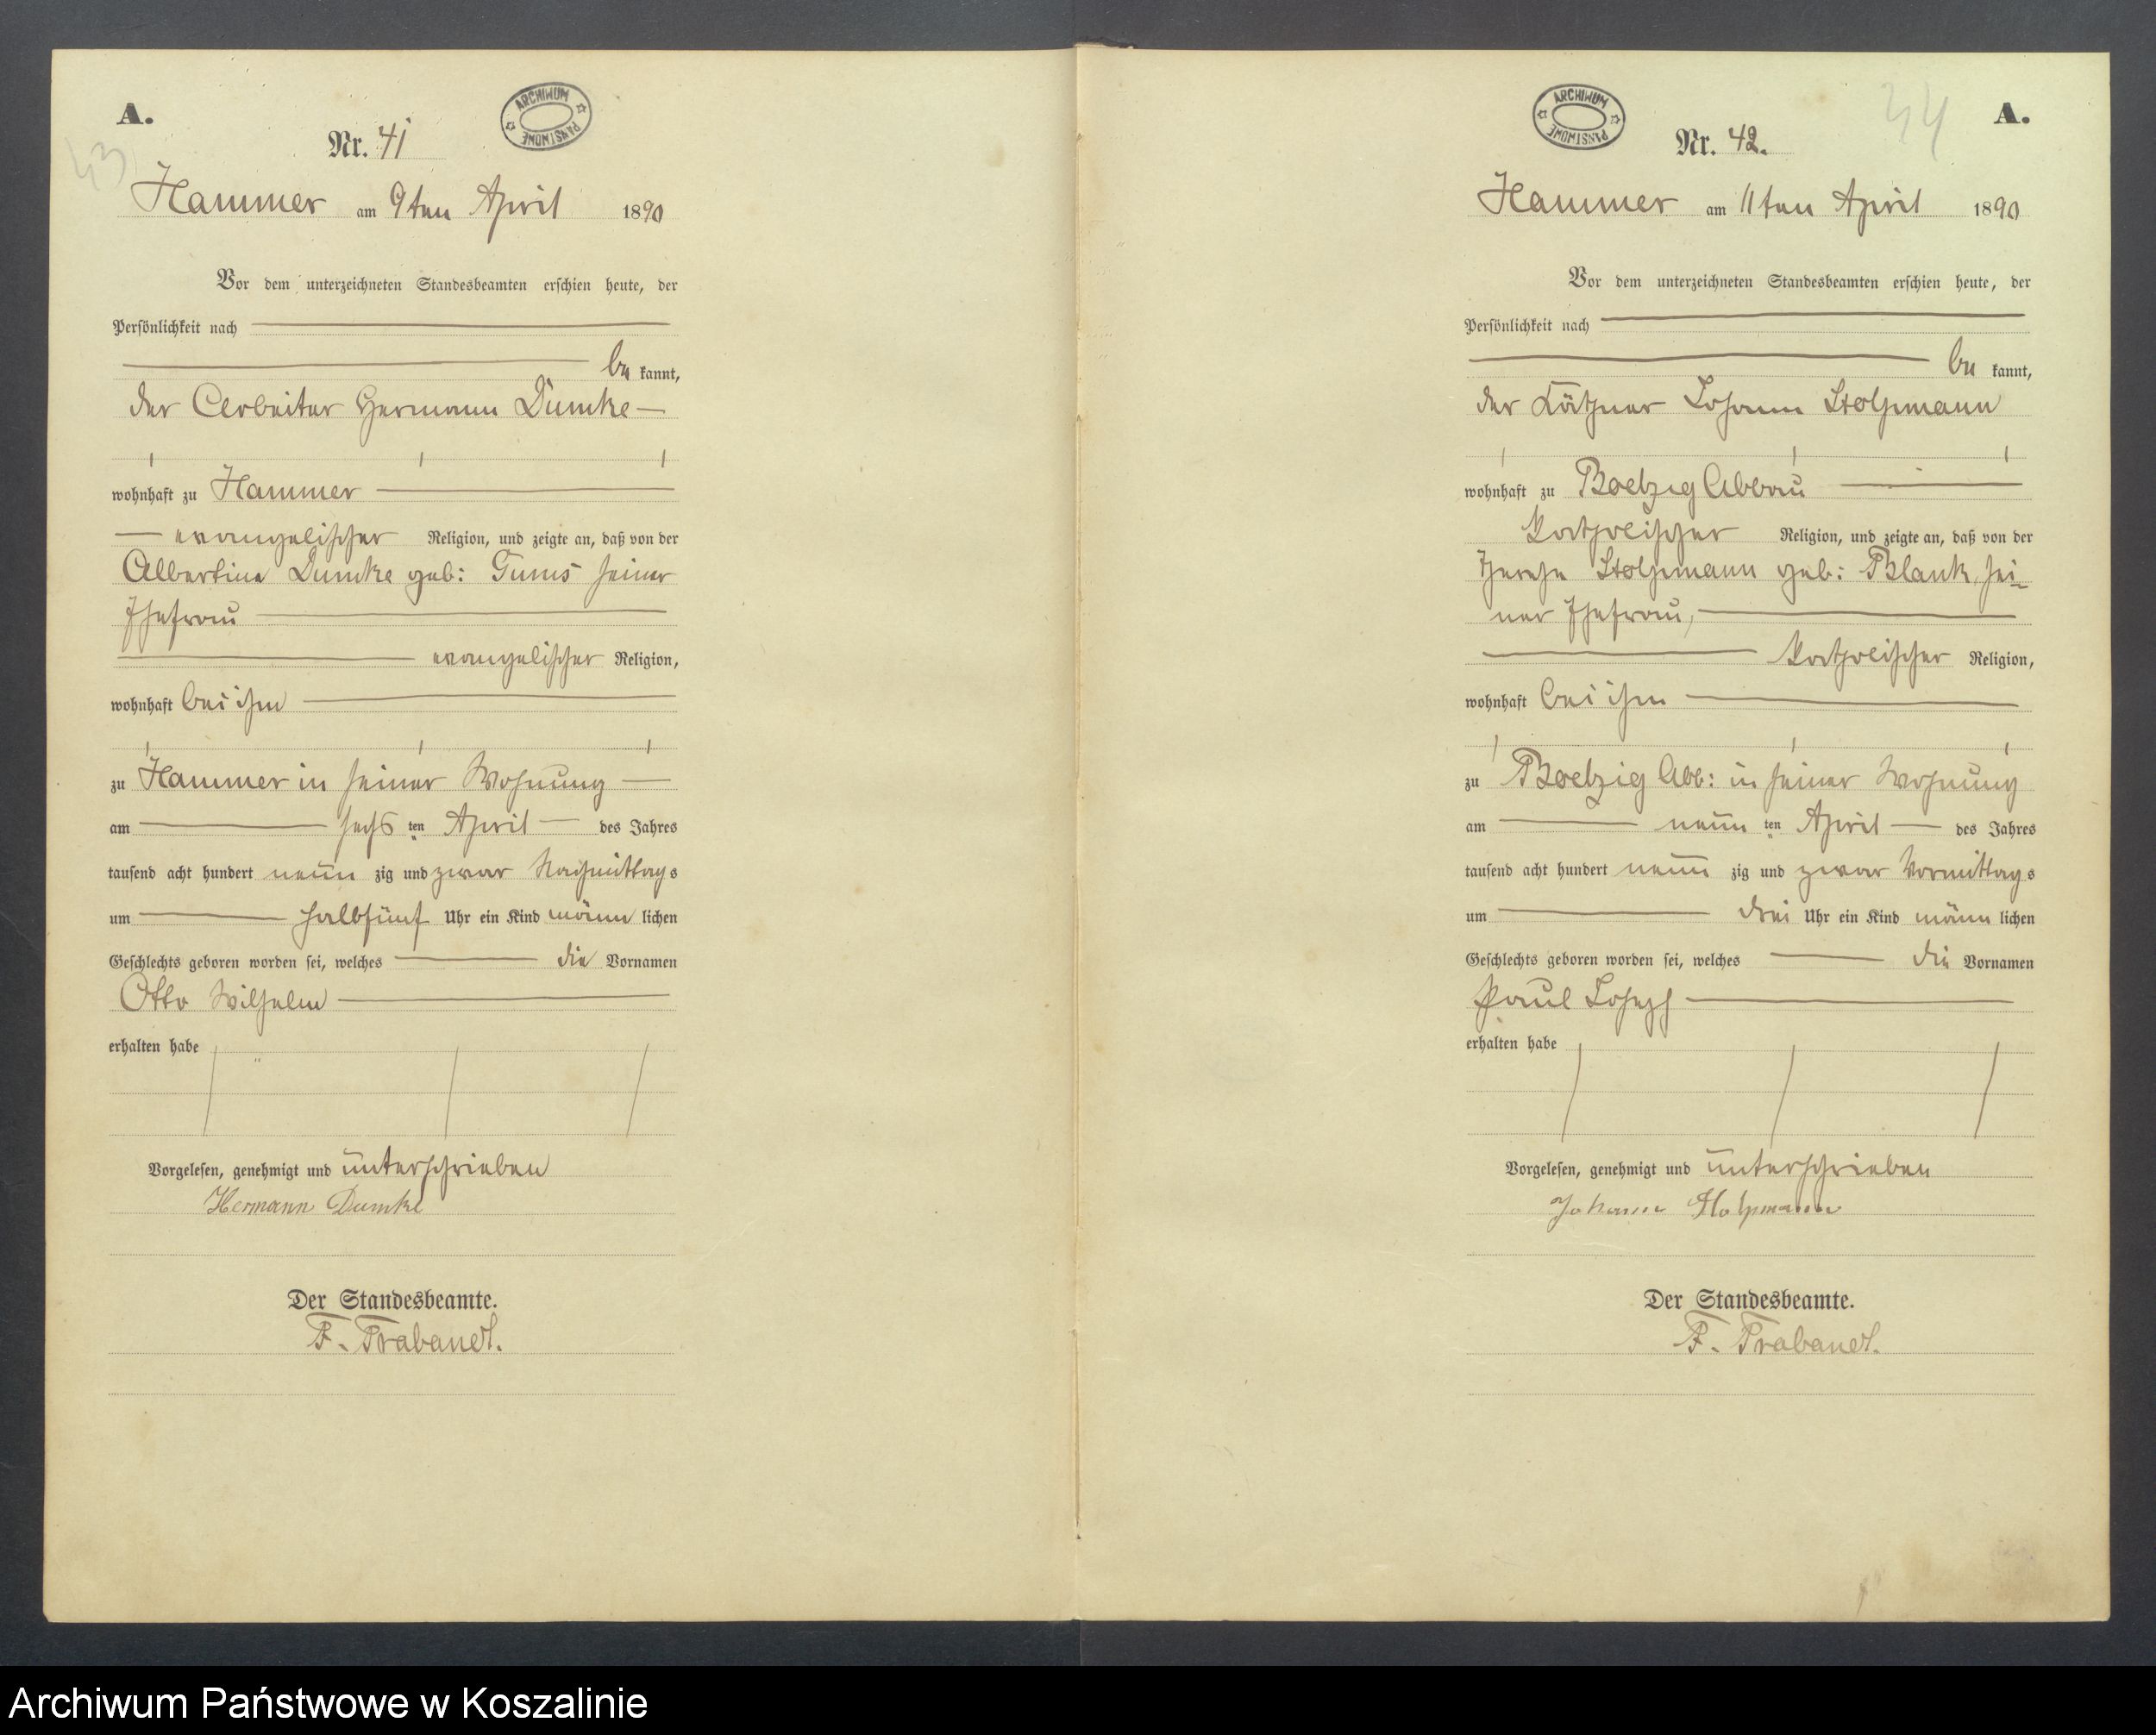 A.
43
Nr. 41
ARCHIWUM PAŃSTWOWE
Hammer am 9ten April 1890
Vor dem unterzeichneten Standesbeamten erschien heute, der
Persönlichkeit nach
be kannt,
der Arbeiter Hermann Dumke
wohnhaft zu Hammer
evangelischer Religion, und zeigte an, daß von der
Albertine Dumke geb: Gums seiner
Ehefrau
evangelischer Religion,
wohnhaft bei ihm
zu Hammer in seiner Wohnung
am sechs ten April des Jahres
tausend acht hundert neun zig und zwar Nachmittags
um halbfünf Uhr ein Kind männ lichen
Geschlechts geboren worden sei, welches die Vornamen
Otto Wilhelm
erhalten habe
Vorgelesen, genehmigt und unterschrieben
Hermann Dumke
Der Standesbeamte.
F. Trabandt.
A.
44
ARCHIWUM PAŃSTWOWE
Nr. 42.
Hammer am 11ten April 1890
Vor dem unterzeichneten Standesbeamten erschien heute, der
Persönlichkeit nach
be kannt,
der Käthner Johann Stolpmann
wohnhaft zu Boelzig Abbau
katholischer Religion, und zeigte an, daß von der
Therese Stolpmann geb: Blank, sei-
ner Ehefrau,
katholischer Religion,
wohnhaft bei ihm
zu Boelzig Abb: in seiner Wohnung
am neun ten April des Jahres
tausend acht hundert neun zig und zwar Vormittags
um drei Uhr ein Kind männ lichen
Geschlechts geboren worden sei, welches die Vornamen
Paul Joseph
erhalten habe
Vorgelesen, genehmigt und unterschrieben
Johann Stolpmann
Der Standesbeamte.
F. Trabandt.
Archiwum Państwowe w Koszalinie